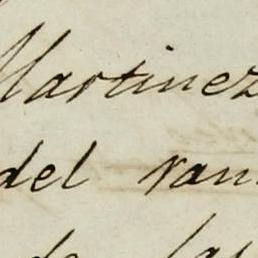 Martinez
del ran
de las